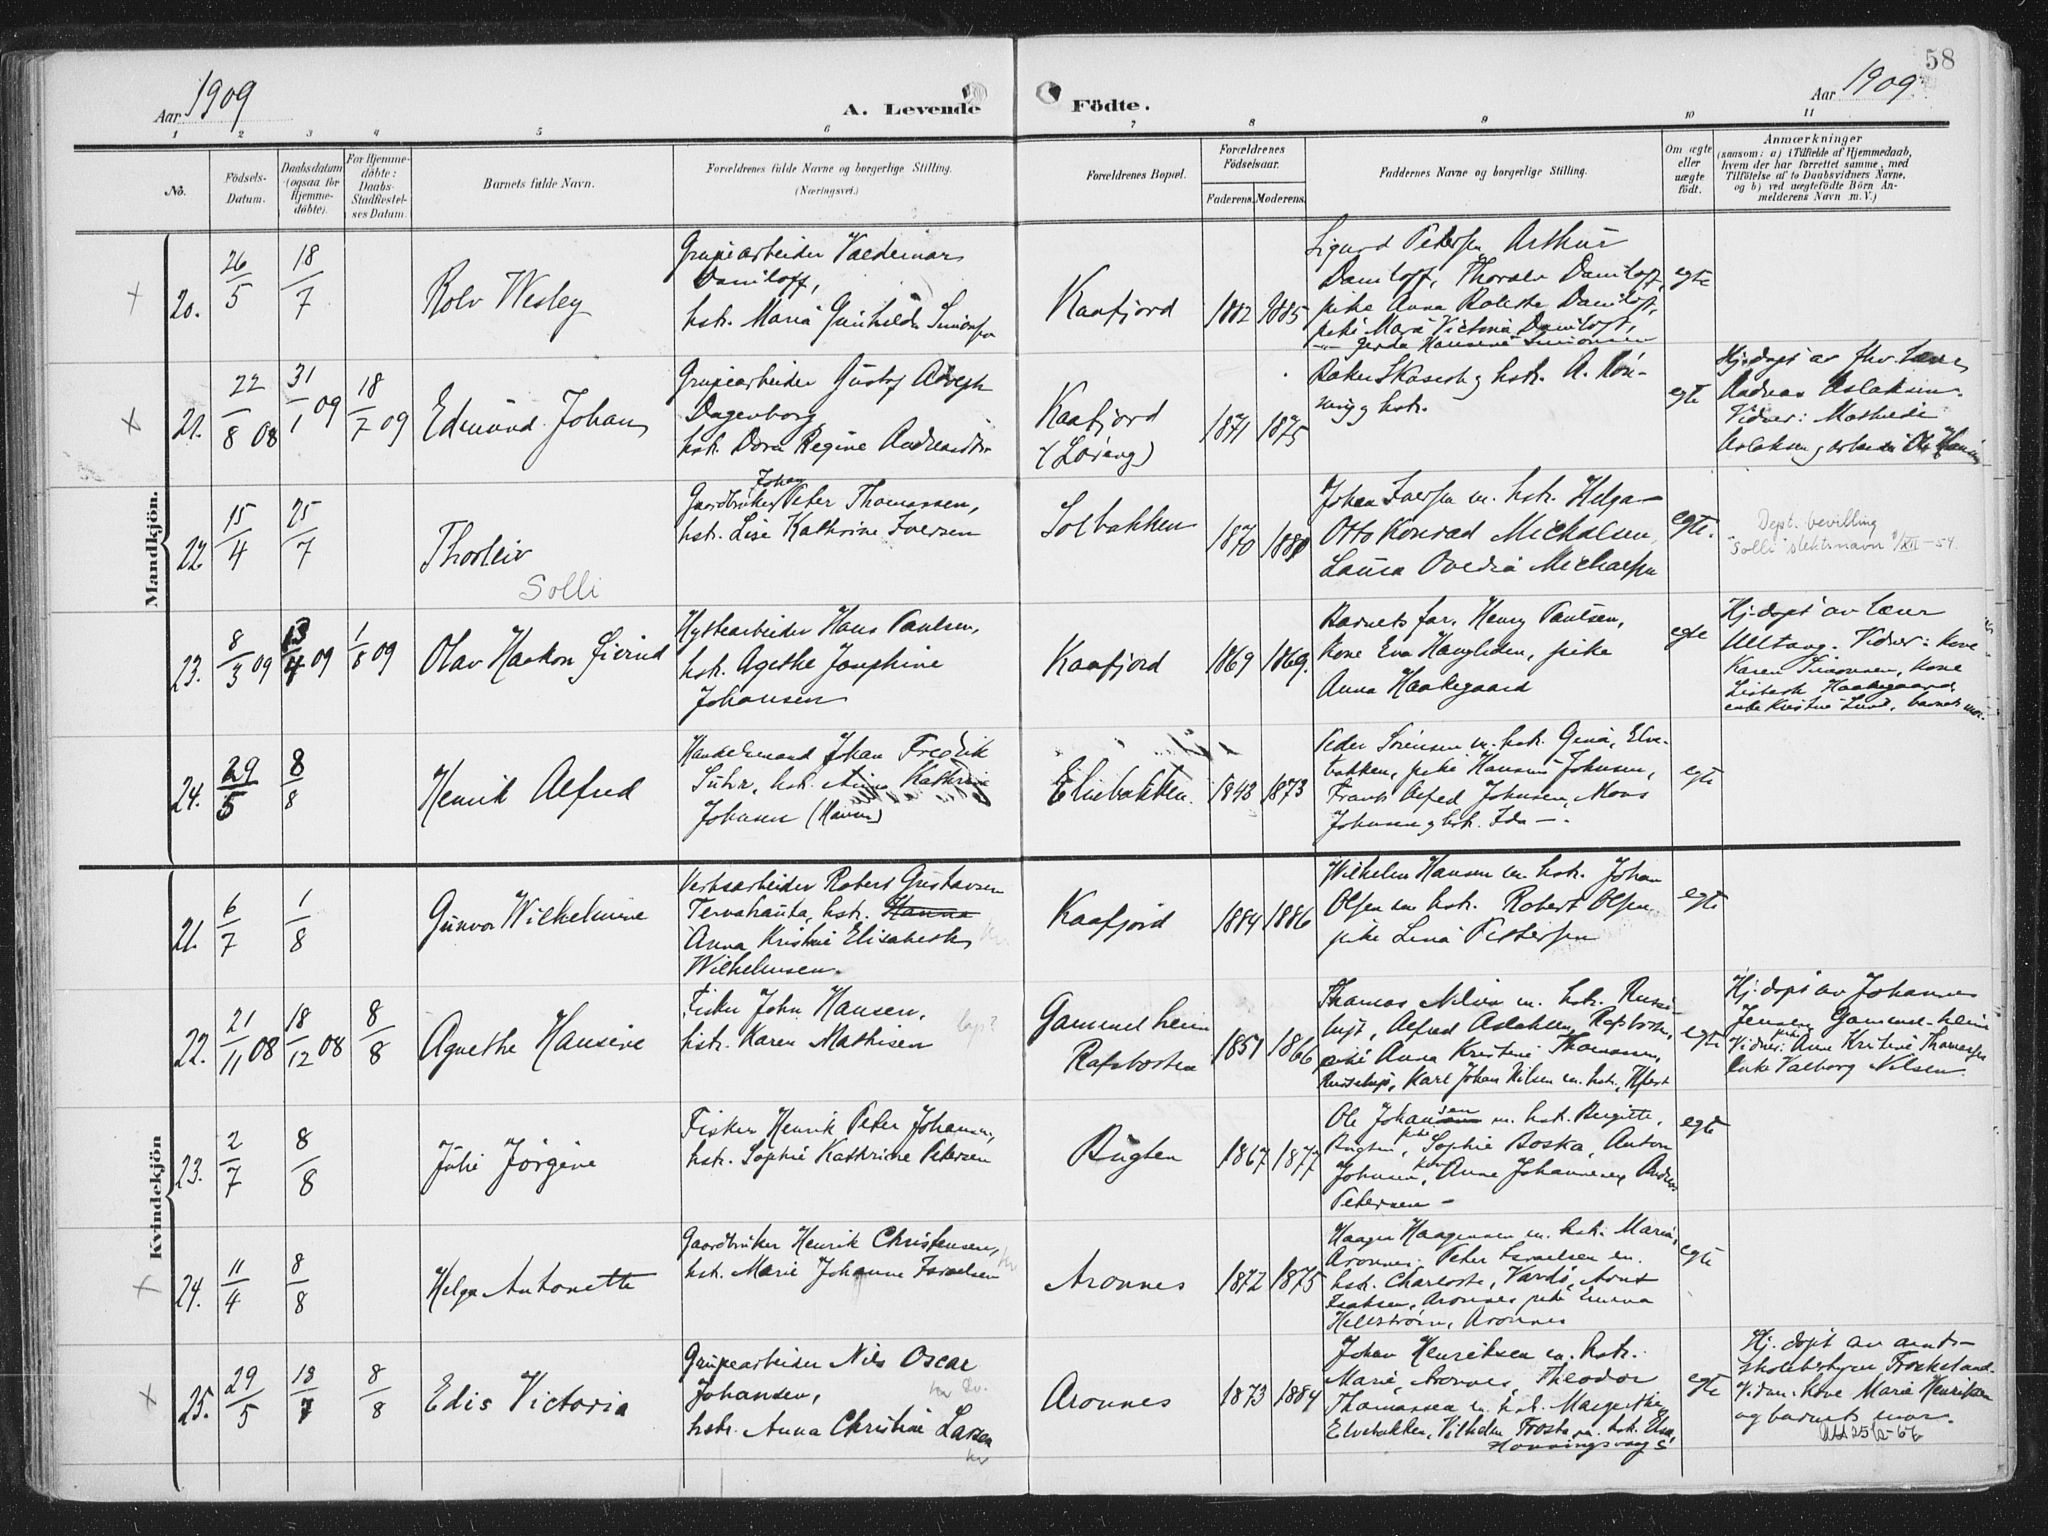 58
Aar 1909
A. Levende Födte.
Aar 1909
1 2 3 4 5 6 7 8 9 10 11
No.
Födsels-
Datum.
Daabsdatum
(ogsaa for
Hjemme-
döbte).
For Hjemme-
döbte:
Daabs-
Stadfæstel-
ses Datum.
Barnets fulde Navn.
Forældrenes fulde Navne og borgerlige Stilling.
(Næringsvei.)
Forældrenes Bopæl.
Forældrenes
Födselsaar.
Faderens. Moderens.
Faddernes Navne og borgerlige Stilling.
Om ægte
eller
uægte
födt.
Anmærkninger
(saasom: a) i Tilfælde af Hjemmedaab,
hvem der har forrettet samme, med
Tilföielse af to Daabsvidners Navne,
og b) ved uægtefödte Börn An-
melderens Navn m.V.)
Mandkjön.
20. 26/5 18/7
Rolv Wesley
Grubearbeider Valdemar
Daniloff,
hstr. Maria Gunhilda Simonsen
Kaafjord
1882 1885
Sigurd Petersen Arthur
Daniloff, Thorolv Daniloff,
pike Anna Daniloff,
pike Maria Victoria Daniloff,
Gerda Hansine Simonsen
egte
21. 22/8 08 31/1 09 18/7 09
Edmund Johan
Grubearbeider Gustaf Adolph
Dagenborg
hstr. Dora Regine
Kaafjord
1871 1875
hstr. A. Rön-
ning g hstr.
egte
Hj.døpt av
Andreas Aslaksen.
Vidner: Mathilde
Aslaksen g arbeider Ole Hansen
22. 15/4 25/7
Thorleiv
Solli
Johan
Gaardbruker Peter Thomassen,
hstr. Lise Kathrine Iversen
Solbakken
1870 1880
Johan Iversen m. hstr. Helga —
Otto Konrad Michalsen,
Laura Ovedia Michalsen
egte.
Dept. bevilling
"Solli" slektsnavn 9/XII-54.
23. 8/3 09 13/4 09 1/8 09
Olav Haakon Eivind
Hyttearbeider Hans Paulsen,
hstr. Agethe Josephine
Johansen
Kaafjord
1869 1869.
Barnets far, Henry Paulsen,
Kone Eva Haugliden, pike
Anna Haakegaard
egte
Hj.døpt av lærer
Ulltang. Vidner: Kone
Karen Simonsen, kone
Lisbeth Haakegaard,
enke Kristine Lund, barnets mor.
24. 29/5 8/8
Henrik Alfred
Handelsmand Johan Fredrik
Suhr, hstr. Anna Kathrine
Johnsen (Hansen)
Elvebakken.
1843 1873
Peder Sörensen m. hstr. Gina, Elve-
bakken, pike Hansine Johnsen,
Frants Alfred Johnsen, Mons
Johnsen g hstr. Ida —.
egte
Kvindekjön
21. 6/7 1/8
Gunvor Wilhelmine
Verksarbeider Robert Gustavsen
Tervahauta, hstr. Hanna
Anna Kristine Elisabeth
Wilhelmsen.
Kaafjord
1884 1886
Wilhelm Hansen m hstr. Johan
Olsen m hstr. Robert Olsen
pike Lina Pettersen
egte
22. 21/11 08 18/12 08 8/8
Agnethe Hansine
Fisker John Hansen,
hstr. Karen Mathisen
lap?
Gammelheim
Rafsbotten
1851 1866
Thomas Nilsen m. hstr. Russe-
lugt, Alfred Aslaksen, Rafsbotten,
pike Anna Kristine Thomassen,
Russelugt, Karl Johan Nilsen m. hstr.
egte
Hj.døpt av Johannes
Jensen Gammelheim
Vidner: pike Ane Kristine Thomassen
enke Valborg Nilsen.
23. 2/7 8/8
Julie Jørgine
Fisker Henrik Peter Johansen,
hstr. Sophie Kathrine Petersen
Bugten
1867 1877
Ole Johansen m. hstr. Birgitte,
Bugten, pike Sophie Boska, Anton
Johnsen, Anne Johannesen, Andreas
Petersen —
egte
24. 11/4 8/8
Helga Antonette
Gaardbruker Henrik Christensen,
hstr. Marie Johanne Israelsen
Aronnes
1872 1875
Haagen Haagensen m. hstr. Maria,
Aronnes, Peter Israelsen m.
hstr. Charlotte, Vardö,
Isaksen, Aronnes, pike Emma
Hellström, Aronnes
egte
25. 29/5 13/7 8/8
Edis Victoria
Grubearbeider Nils Oscar
Johansen,
hstr. Anna Christine Larsen
Aronnes
1873 1884
Johan Henriksen m. hstr.
Marie, Aronnes, Theodor
Thomassen m. hstr. Margrethe,
Elvebakken, Vilhelm Frosta m. hstr.
Honningsvaag
egte
Hj.døpt av amts-
skolebestyrer Frokeland.
Vidner: Kone Marie Henriksen
og barnets mor.